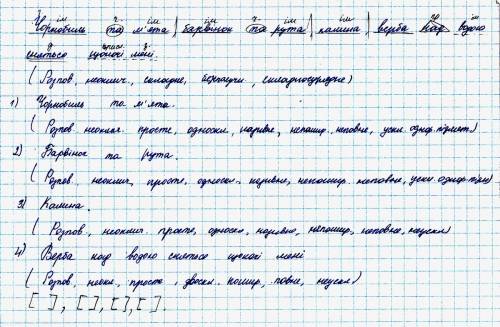 ім. ч. ім ім. ч. ім ім ім. пр ім
Чорнобиль та м'ята, барвінок та рута, калина, верба над водою
д присл. з.
сняться щоночі мені.
(Розпов, неоклич., складне, складносурядне)
1) Чорнобиль та м'ята.
(Розпов. неоклич. просте, односкл., наз��вне, непошир. неповне, ускл. однор. підмет.)
2) Барвінок та рута.
(Розпов, неоклич., просте, односкл. називне, непошир. неповне, ускл. однор. підм)
3) Калина.
(Розпов, неоклич. просте, односкл. називне, непошир., неповне, неускл)
4) Верба над водою сняться щночі мені
(Розпов, неокл., просте, двоскл. пошир., повне, неускл.)
[ ], [ ], [ ], [ ].